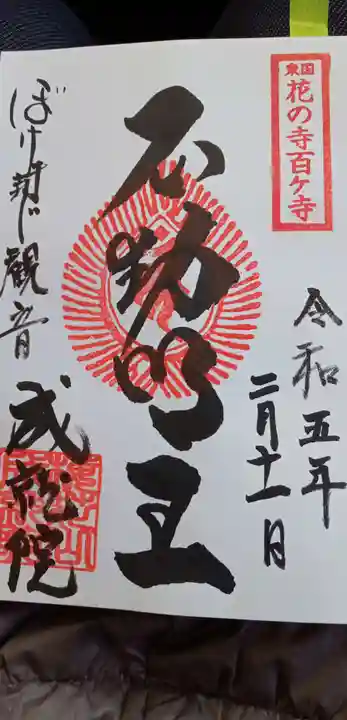 東国
花の寺百ケ寺
令和五年
二月十一日
不動明王
ぼけ封じ観音
成龍院